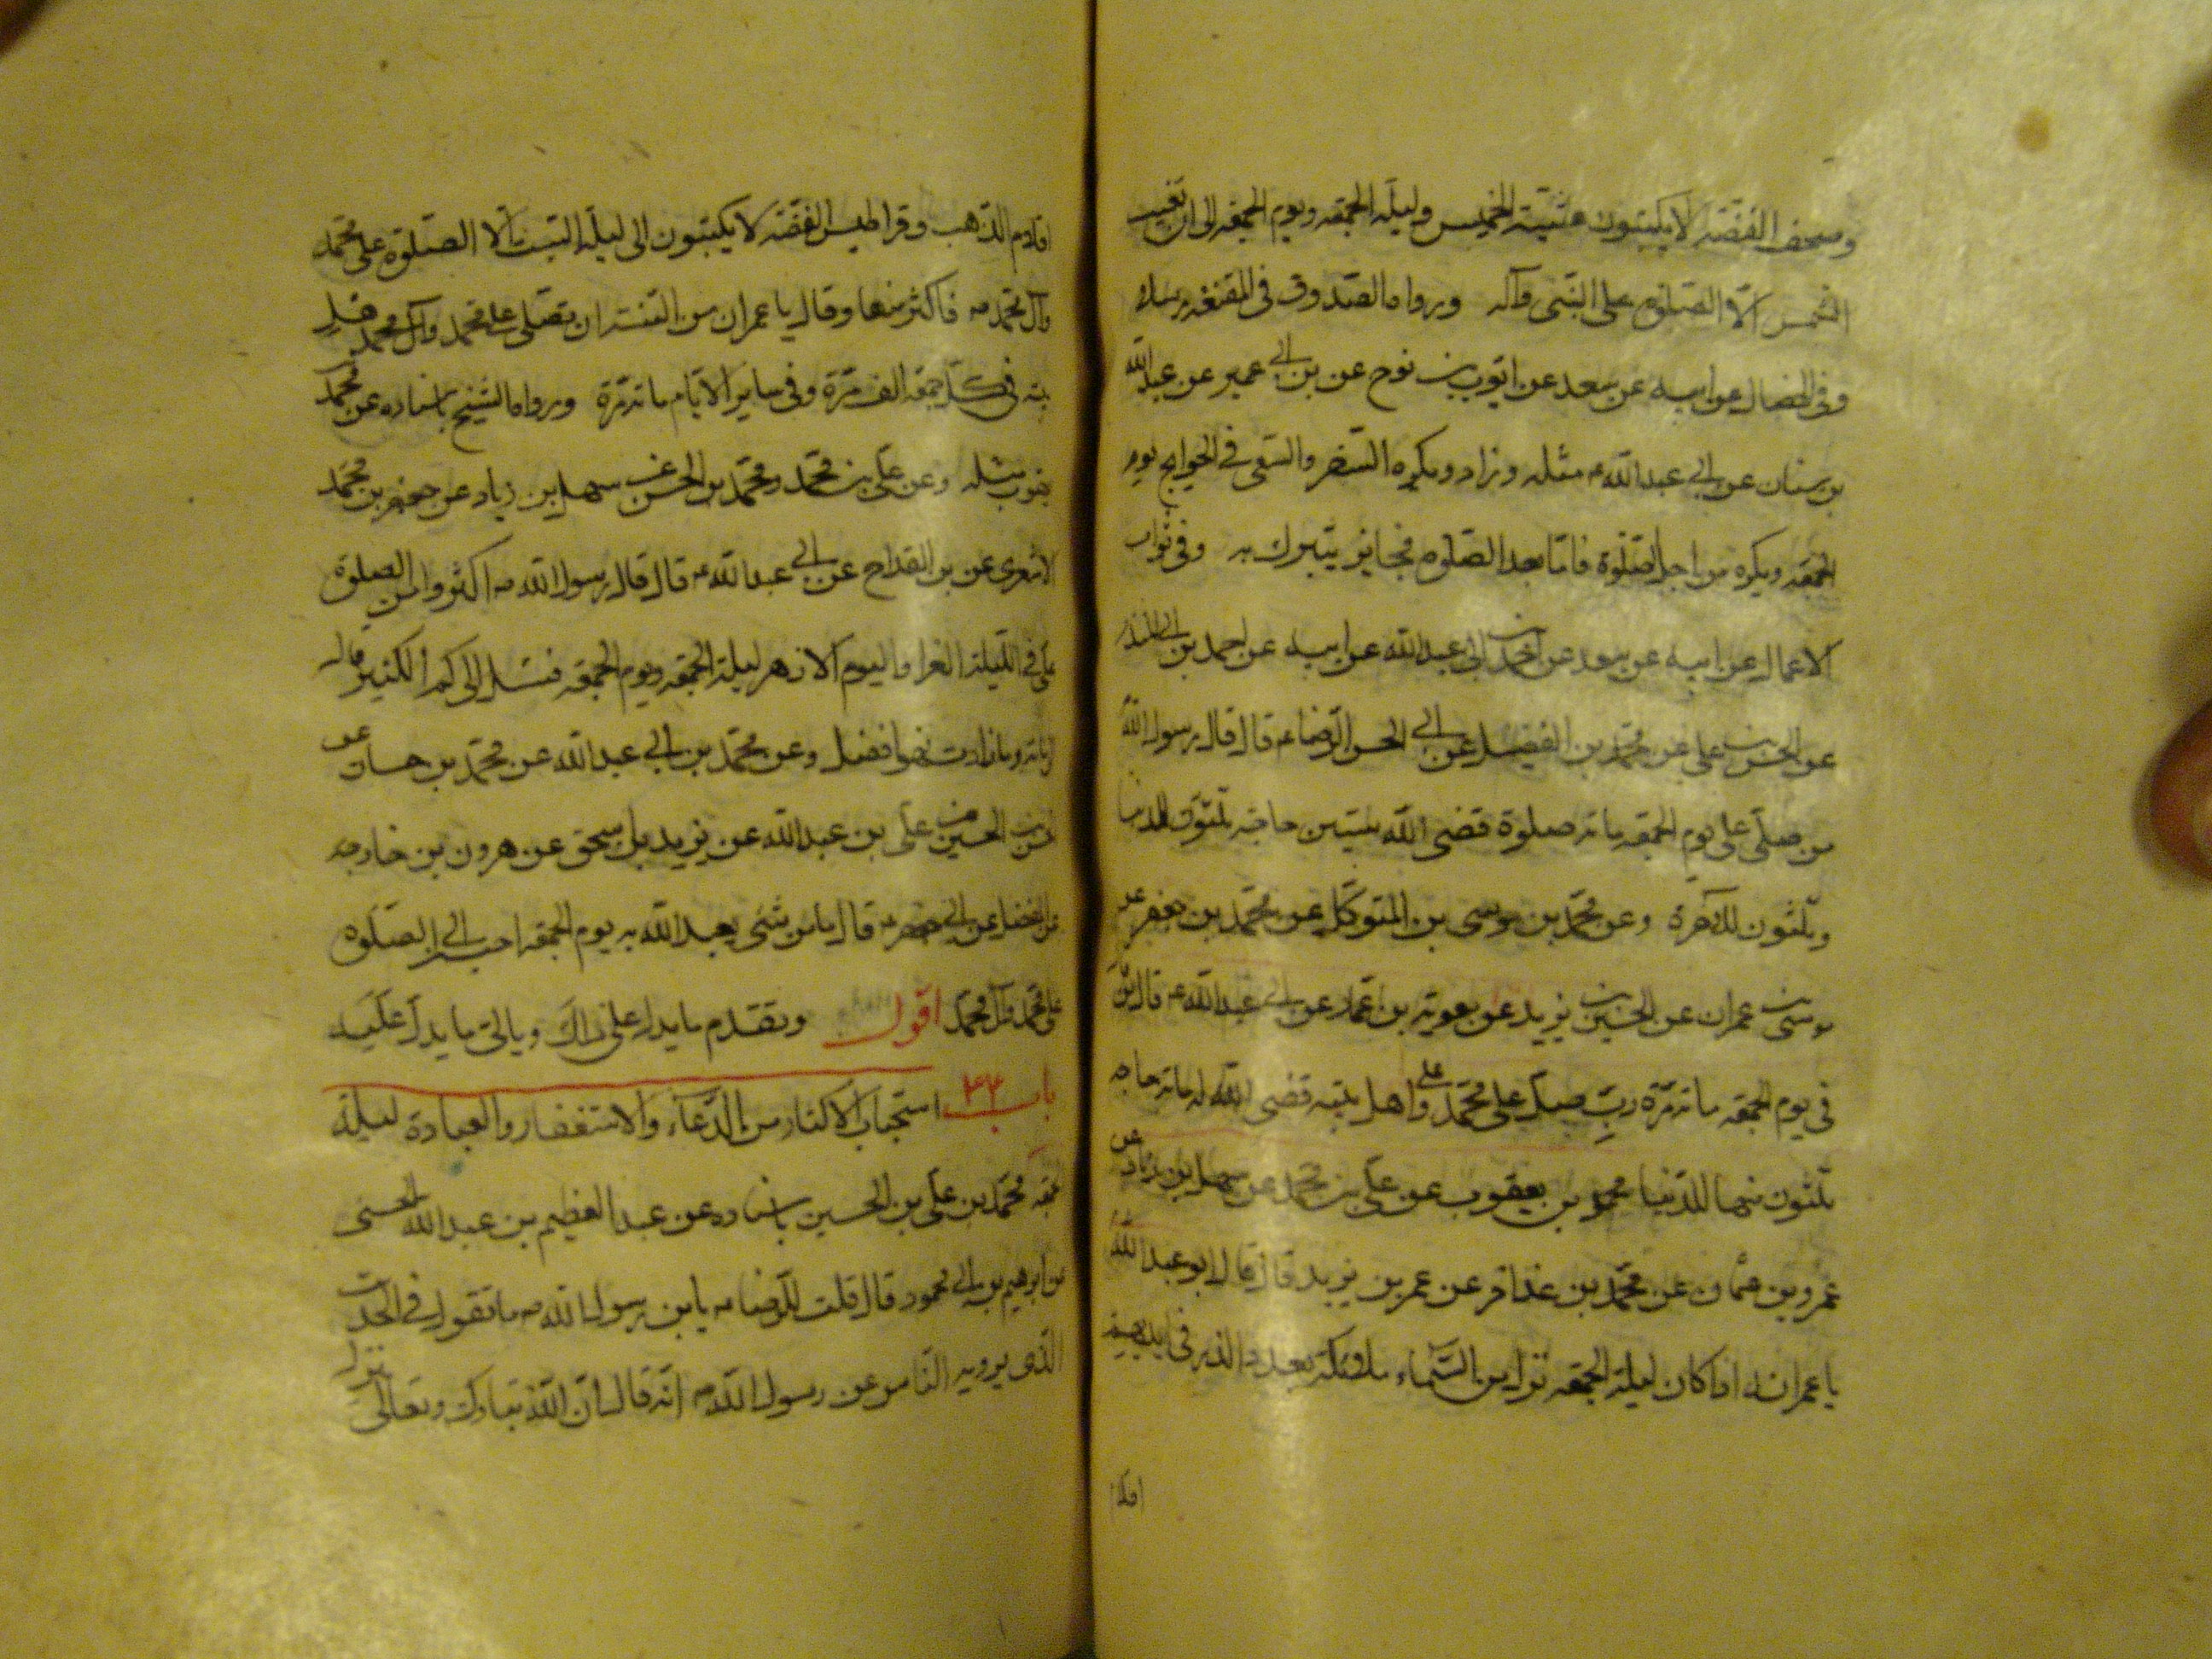 وصحف الفضّة لا يكتبون عشيّة الخميس وليلة الجمعه ويوم الجمعه الى ان تغيب
الشمس الّا الصلوة على النبى وآله ورواه الصدوق فى المقنعه مرسلا
وفى الخصال عن ابيه عن سعد عن ايّوب بن نوح عن بن ابى عمير عن عبد الله
بن سنان عن ابى عبد الله ع مثله وزاد ويكره السّفر والسّعى فى الحوايج يوم
الجمعه ويكره من اجل الصّلوة فامّا بعد الصّلوة فجايز يتبرك به وفى ثواب
الاعمال عن ابيه عن سعد عن احمد بن ابى عبد الله عن ابيه عن احمد بن
عن الحسن بن علىّ عن محمّد بن الفضيل عن ابى الحسن الرّضا ع قال قال رسول الله
من صلّى علىّ يوم الجمعه مائة صلوة قضى الله ستّين حاجة ثلثون للدنيا
وثلثون للآخرة وعن محمّد بن موسى بن المتوكّل عن محمّد بن جعفر عن
موسى بن عمران عن الحسين بن يزيد عن معوية بن عمّار عن ابى عبد الله ع قال من
فى يوم الجمعه مائة مرّة ربّ صلّ على محمّد وعلى اهل بيته قضى الله له مائة حاجه
ثلثون منها للدّنيا محمد بن يعقوب عن علىّ بن محمّد عن سهل بن زياد عن
عمرو بن عثمان عن محمّد بن عذافر عن عمر بن يزيد قال قال ابو عبد الله
يا عمر انه اذا كان ليلة الجمعه نزل من السّماء ملائكة بعدد الذر فى ايديهم
اقلا
اقلام الذّهب وقراطيس الفضّة لا يكتبون الى ليلة السّبت الّا الصّلوة على محمّد
وآل محمّد ص فاكثر منها وقال يا عمر ان من السّنة ان تصلّى على محمّد وآل محمّد اهل
بيته فى كلّ جمعه الف مرّة وفى ساير الايّام مائة مرّة ورواه الشيخ باسناده عن محمّد
يعقوب مثله وعن علىّ بن محمّد ومحمّد بن الحسن عن سهل بن زياد عن جعفر بن محمّد
الاشعرى عن بن القداح عن ابى عبد الله ع قال قال رسول الله ص اكثروا من الصلوة
علىّ فى الليلة الغرا واليوم الازهر ليلة الجمعه ويوم الجمعه فسئل الى كم الكثير قال
مائة وما زادت فهو افضل وعن محمّد بن ابى عبد الله عن محمّد بن حسان عن
الحسن بن الحسين عن علىّ بن عبد الله عن يزيد بن اسحق عن هرون بن خارجه
عن المفضل عن ابى جعفر ع قال ما من شىء يعبد الله به يوم الجمعه احب الىّ من الصّلوه
على محمّد وآل محمّد اقول وتقدم ما يدل على ذلك وياتى ما يدل عليه
باب ٤٣ استحباب الاكثار من الدّعاء والاستغفار والعبادة ليلة
الجمعه محمّد بن علىّ بن الحسين باسناده عن عبد العظيم بن عبد الله الحسنى
عن ابرهيم بن ابى محمود قال قلت للرّضا ع يا بن رسول الله ص ما تقول فى الحديث
الّذى يرويه النّاس عن رسول الله ص انّه قال انّ الله تبارك وتعالى ينزل